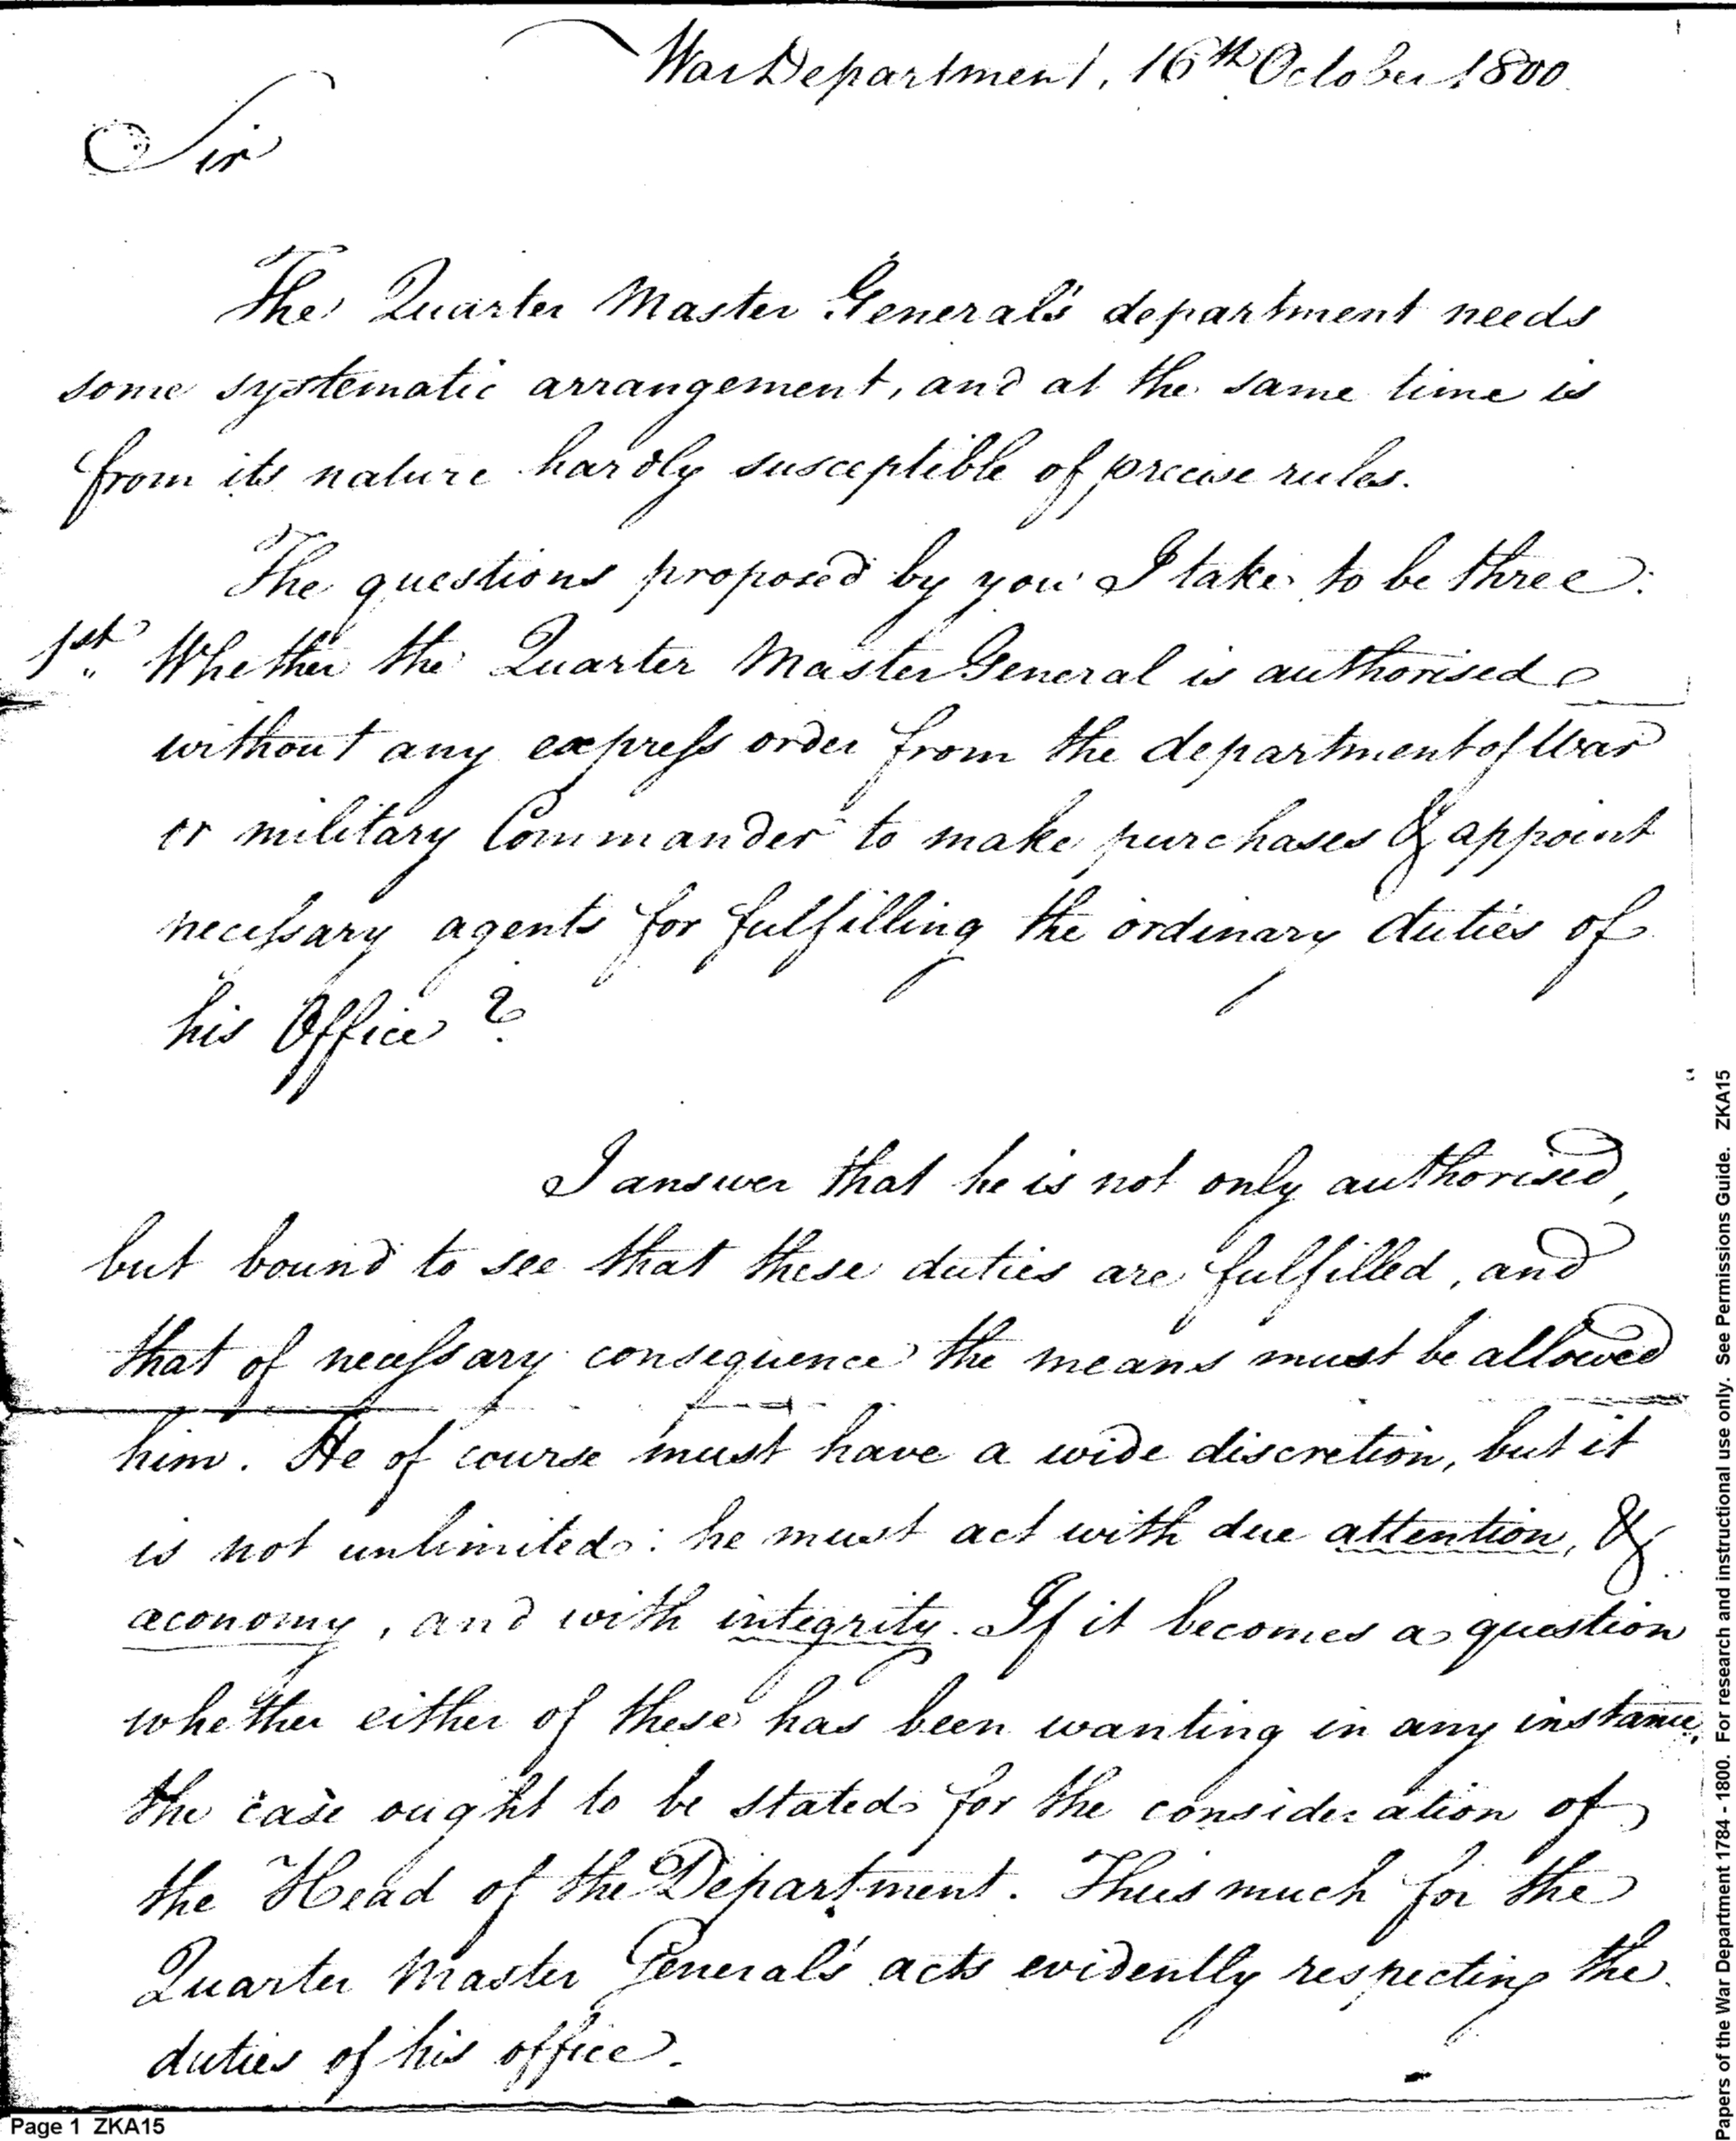 War Department, 16th October 1800.
Sir
The Quarter Master General's department needs
some systematic arrangement, and at the same time is
from its nature hardly susceptible of precise rules.
The questions proposed by you I take to be three:
1st. Whether the Quarter Master General is authorised
without any express order from the department of War
or military Commander to make purchases & appoint
necessary agents for fulfilling the ordinary duties of
his Office?
I answer that he is not only authorised,
but bound to see that these duties are fulfilled, and
that of necessary consequence the means must be allowed
him. He of course must have a wide discretion, but it
is not unlimited: he must act with due attention, &
œconomy, and with integrity. If it becomes a question
whether either of these has been wanting in any instance,
the case ought to be stated for the consideration of
the Head of the Department. Thus much for the
Quarter Master General's acts evidently respecting the
duties of his office.
Page 1 ZKA15
Papers of the War Department 1784 - 1800. For research and instructional use only. See Permissions Guide. ZKA15